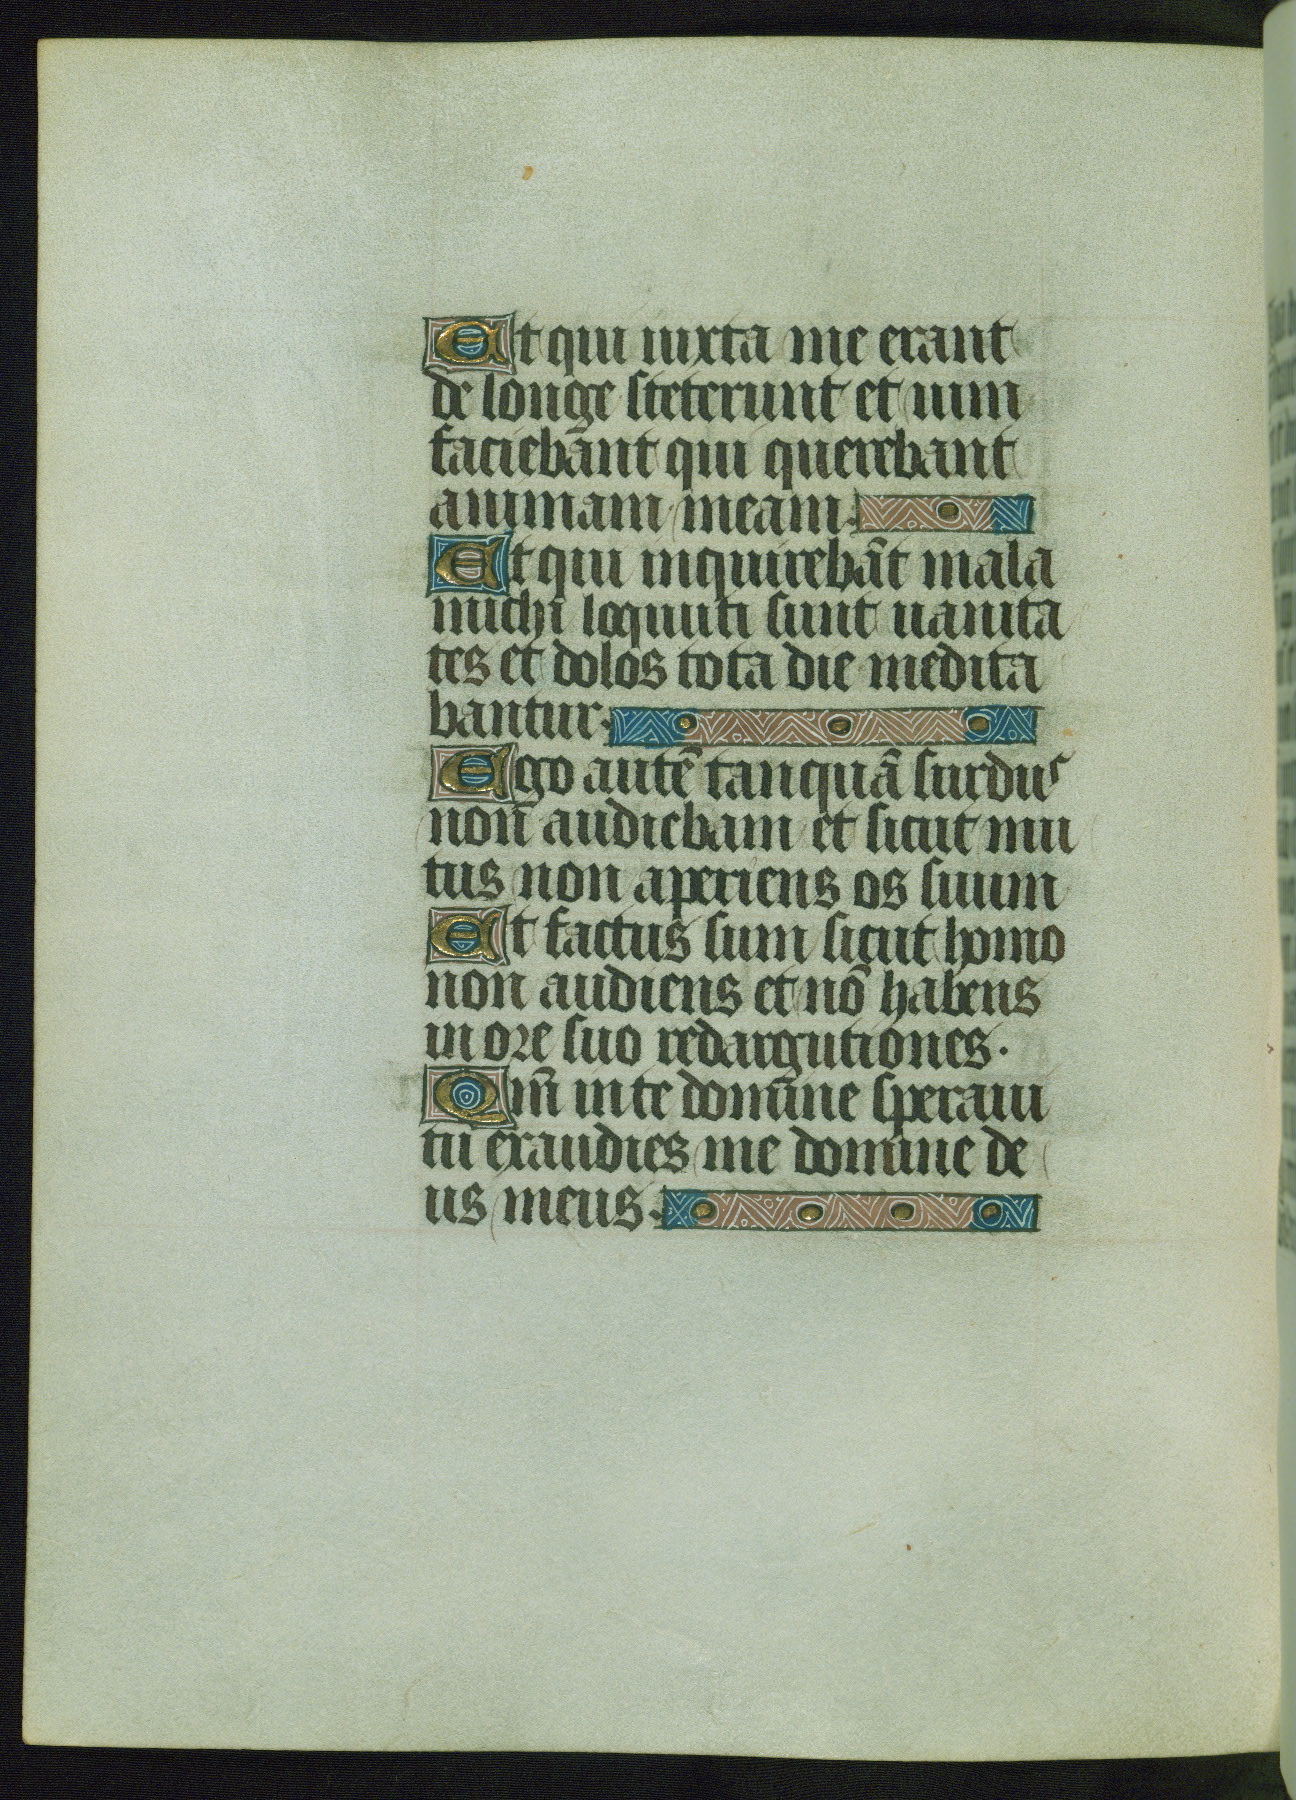 Et qui iuxta me erant
de longe steterunt et uim
faciebant qui querebant
animam meam.
Et qui inquirebāt mala
michi loquuti sunt uanita
tes et dolos tota die medita
bantur.
Ego autē tanquā surdus
non audiebam et sicut mu
tus non aperiens os suum
Et factus sum sicut homo
non audiens et nō habens
in ore suo redargutiones.
Qm̄ in te domine speraui
tu exaudies me domine de
us meus.